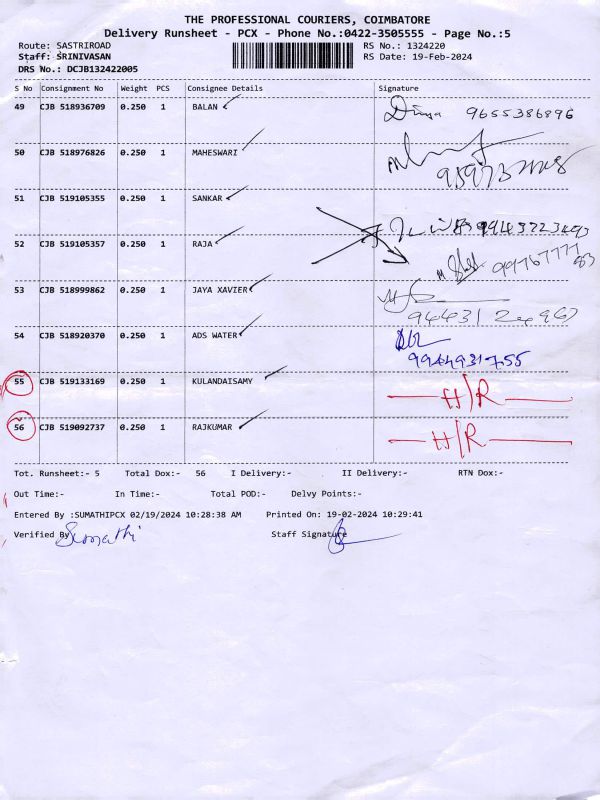 THE PROFESSIONAL COURIERS, COIMBATORE
Delivery Runsheet - PCX - Phone No.:0422-3505555 - Page No.:5
Route: SASTRIROAD RS No.: 1324220
Staff: SRINIVASAN RS Date: 19-Feb-2024
DRS No.: DCJB132422005
S No Consignment No Weight PCS Consignee Details Signature
49 CJB 518936709 0.250 1 BALAN 9655386896
50 CJB 518976826 0.250 1 MAHESWARI
51 CJB 519105355 0.250 1 SANKAR
52 CJB 519105357 0.250 1 RAJA
53 CJB 518999862 0.250 1 JAYA XAVIER
54 CJB 518920370 0.250 1 ADS WATER
55 CJB 519133169 0.250 1 KULANDAISAMY H/R
56 CJB 519092737 0.250 1 RAJKUMAR H/R
Tot. Runsheet:- 5 Total Dox:- 56 I Delivery:- II Delivery:- RTN Dox:-
Out Time:- In Time:- Total POD:- Delvy Points:-
Entered By :SUMATHIPCX 02/19/2024 10:28:38 AM Printed On: 19-02-2024 10:29:41
Verified By Sumathi Staff Signature